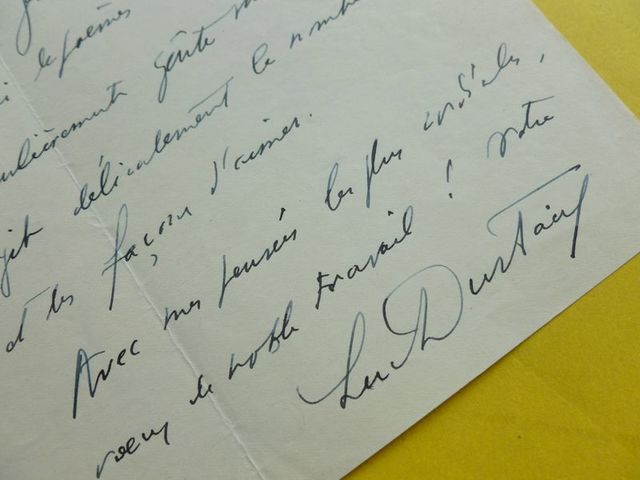 de poèmes
goûte
délicatement le nombre
et les façons d'aimer.
Avec mes pensées les plus cordiales,
voeux de noble travail ! votre
Luc Durtain